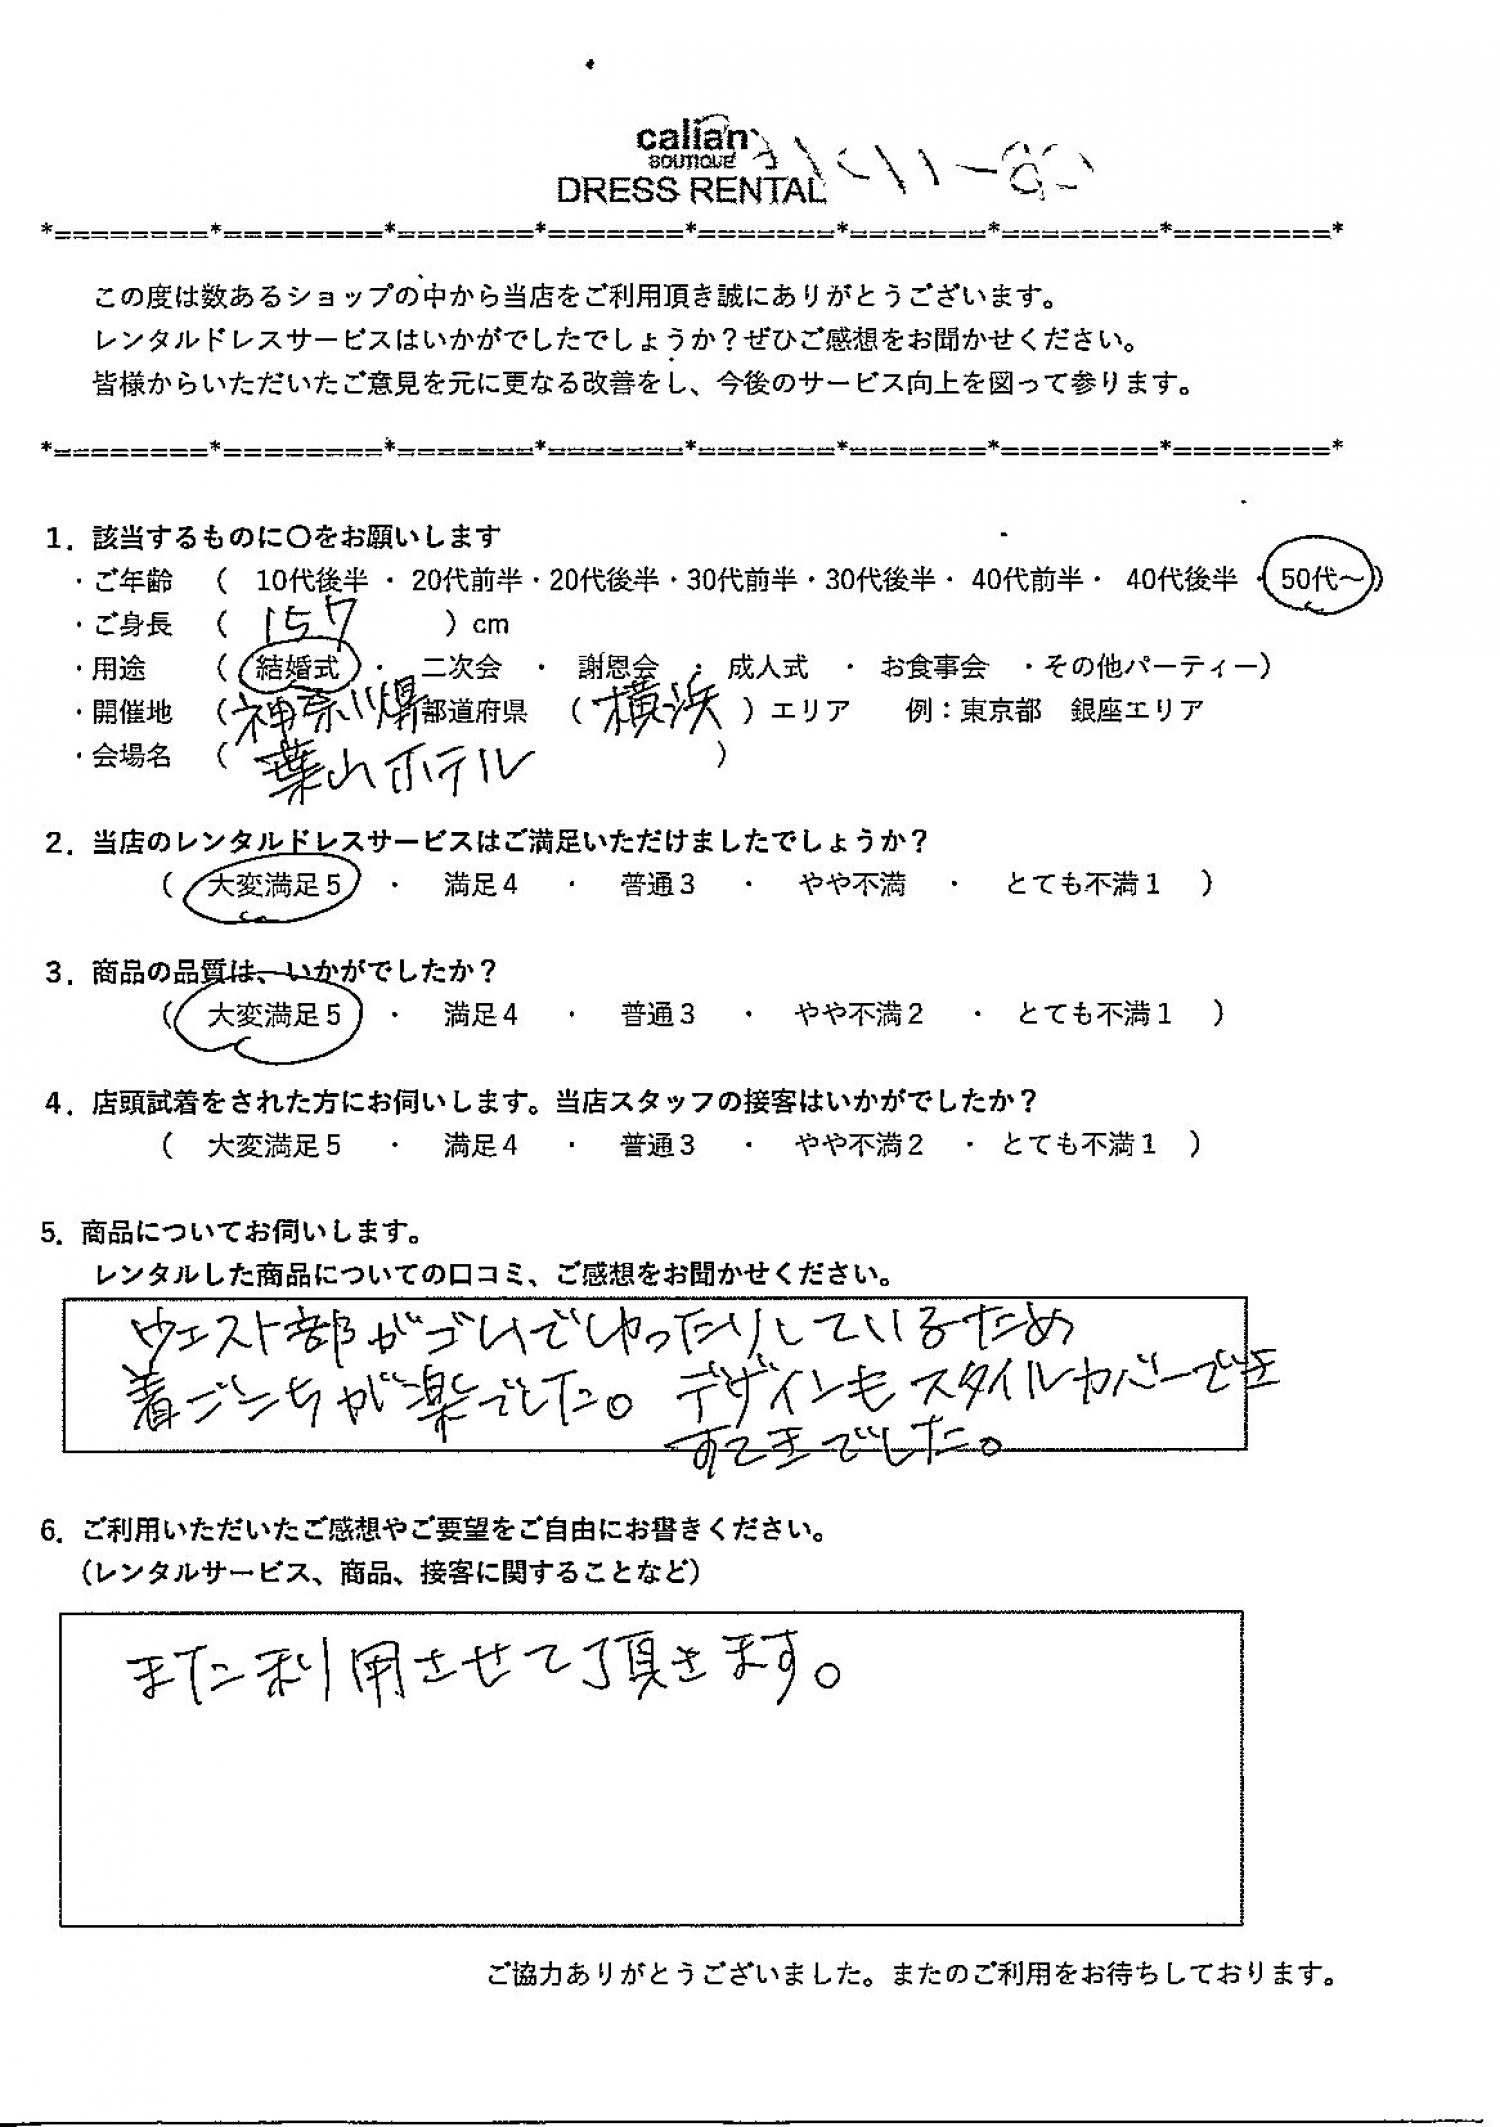 calian
BOUTIQUE
DRESS RENTAL
*========*========*=======*=======*=======*=======*========*========*
この度は数あるショップの中から当店をご利用頂き誠にありがとうございます。
レンタルドレスサービスはいかがでしたでしょうか?ぜひご感想をお聞かせください。
皆様からいただいたご意見を元に更なる改善をし、今後のサービス向上を図って参ります。
*========*========*=======*=======*=======*=======*========*========*
1. 該当するものに〇をお願いします
・ご年齢 ( 10代後半 ・ 20代前半・20代後半・30代前半・30代後半・ 40代前半・ 40代後半 ・50代~)
・ご身長 ( 157 ) cm
・用途 ( 結婚式 ・ 二次会 ・ 謝恩会 ・ 成人式 ・ お食事会 ・その他パーティー)
・開催地 (神奈川県 都道府県 ( 横浜 ) エリア 例:東京都 銀座エリア
・会場名 ( 葉山ホテル )
2. 当店のレンタルドレスサービスはご満足いただけましたでしょうか?
( 大変満足5 ・ 満足4 ・ 普通3 ・ やや不満 ・ とても不満1 )
3. 商品の品質は、いかがでしたか?
( 大変満足5 ・ 満足4 ・ 普通3 ・ やや不満2 ・ とても不満1 )
4. 店頭試着をされた方にお伺いします。当店スタッフの接客はいかがでしたか?
( 大変満足5 ・ 満足4 ・ 普通3 ・ やや不満2 ・ とても不満1 )
5. 商品についてお伺いします。
レンタルした商品についての口コミ、ご感想をお聞かせください。
ウエスト部がゴムでゆったりしているため
着ごこちが楽でした。 デザインもスタイルカバーでき
すてきでした。
6. ご利用いただいたご感想やご要望をご自由にお書きください。
(レンタルサービス、商品、接客に関することなど)
また利用させて頂きます。
ご協力ありがとうございました。またのご利用をお待ちしております。